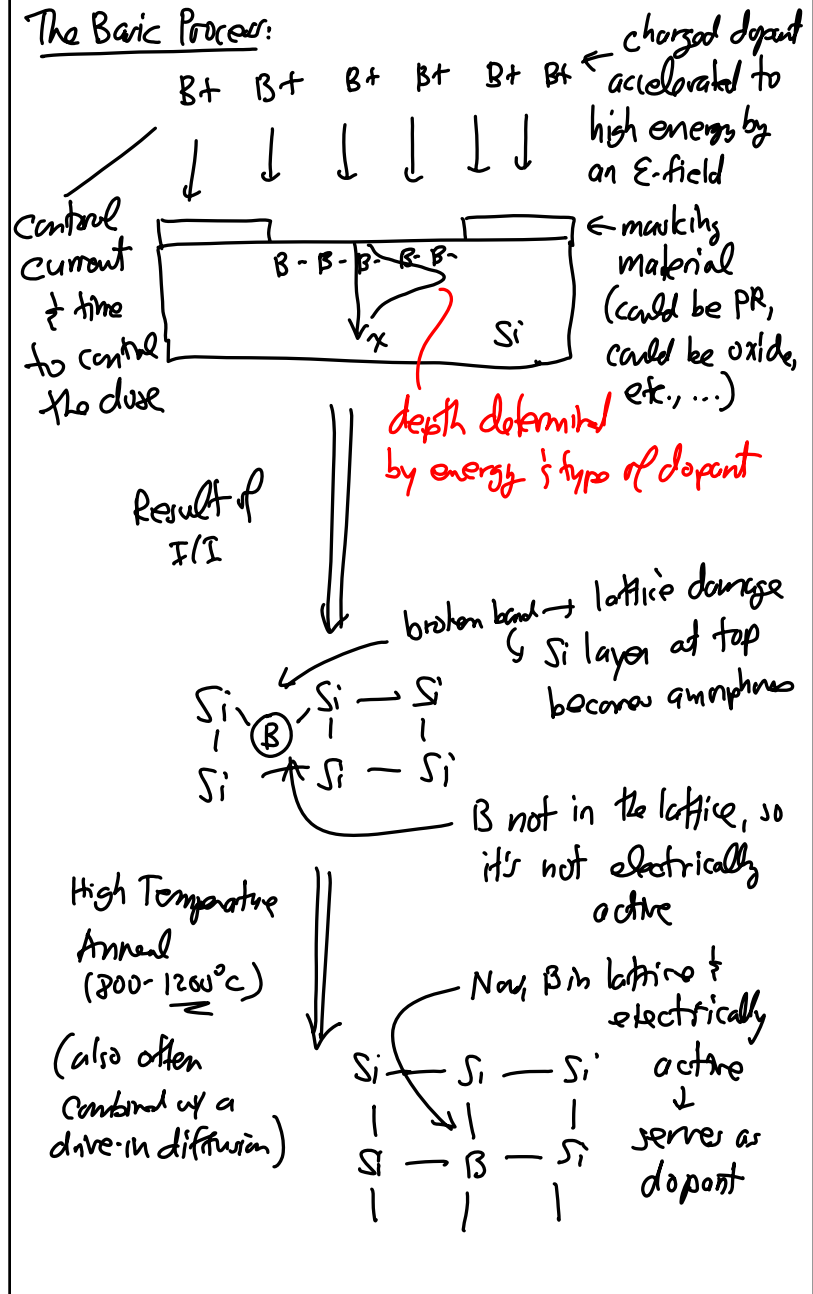 The Basic Process:
B+ B+ B+ B+ B+ B+
← charged dopant
accelerated to
high energy by
an E-field
control
current
& time
to control
the dose
B- B- B- B- B-
x
Si
← masking
material
(could be PR,
could be oxide,
etc., ...)
depth determined
by energy & type of dopant
Result of
I/I
broken bond → lattice damage
↳ Si layer at top
becomes amorphous
Si B Si — Si
Si — Si — Si
B not in the lattice, so
it's not electrically
active
High Temperature
Anneal
(800-1200°C)
(also often
combined w/ a
drive-in diffusion)
Now, B in lattice &
electrically
active
↓
serves as
dopant
Si — Si — Si
Si — B — Si